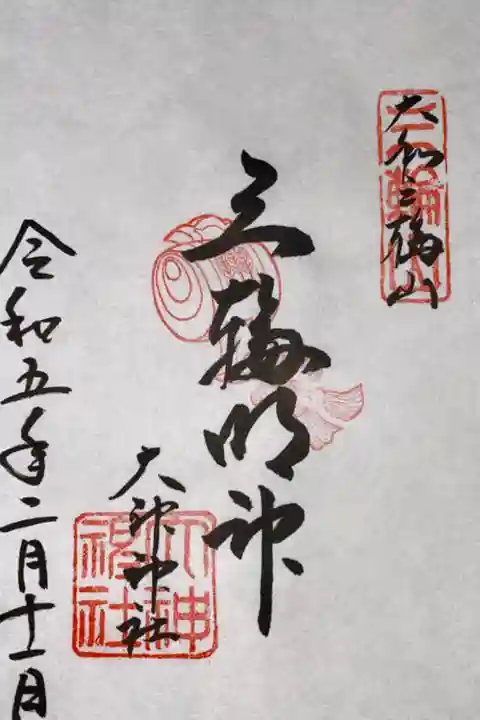 大和三輪山
三輪明神
大神神社
大神神社
令和五年二月十一日